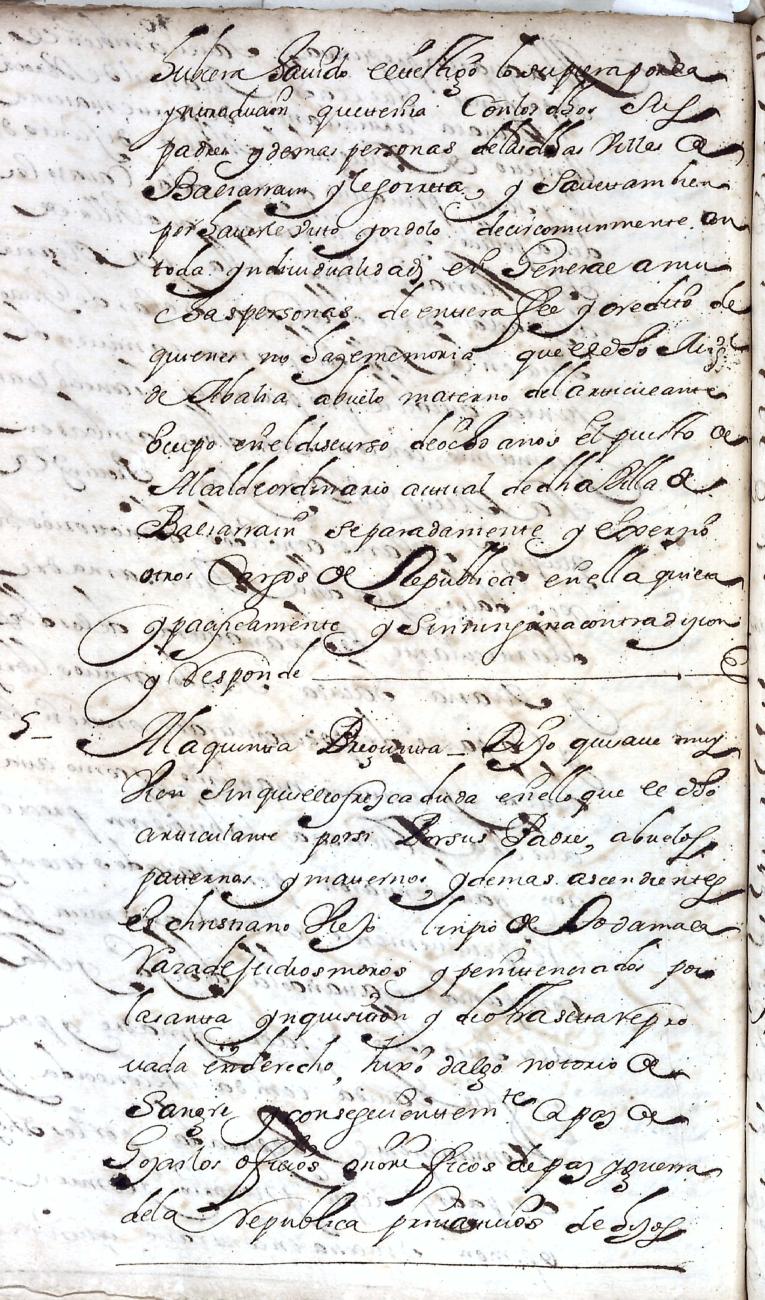 hubiera havido el testigo lo supiera por la
yntroducion que tenia Con los dhos sus
padres y demas personas de las dhas Villas de
Baliarrain y legorreta, y save tambien
por haverle visto y oydolo decir comunmente con
toda yndividualidad en General a mu
chas personas de entera fee y credito de
quienes no haze memoria que el dho Mig.l
de Abalia abuelo materno del articulante
ocupo en el discurso de ocho años el puesto de
Alcalde ordinario actual de dha Villa de
Baliarrain separadamente y exercio
otros Cargos de Republica en ella quieta
y pacificamente y sin ninguna contradizion
y Responde
5 _ A la quinta Pregunta _ Dijo que save muy
bien sin que se le ofrezca duda en ello que el dho
articulante por si Por sus Padres, abuelos
paternos y maternos, y demas ascendientes
es christiano Viejo limpio de toda mala
Raza de judios moros y penitenciados por
la santa ynquisicion y de otra secta repro
vada en derecho, hixo dalgo notorio de
Sangre y conseguientem.te Capaz de
Gozar los oficios onorificos de paz y guerra
de la Republica privativos de hijos